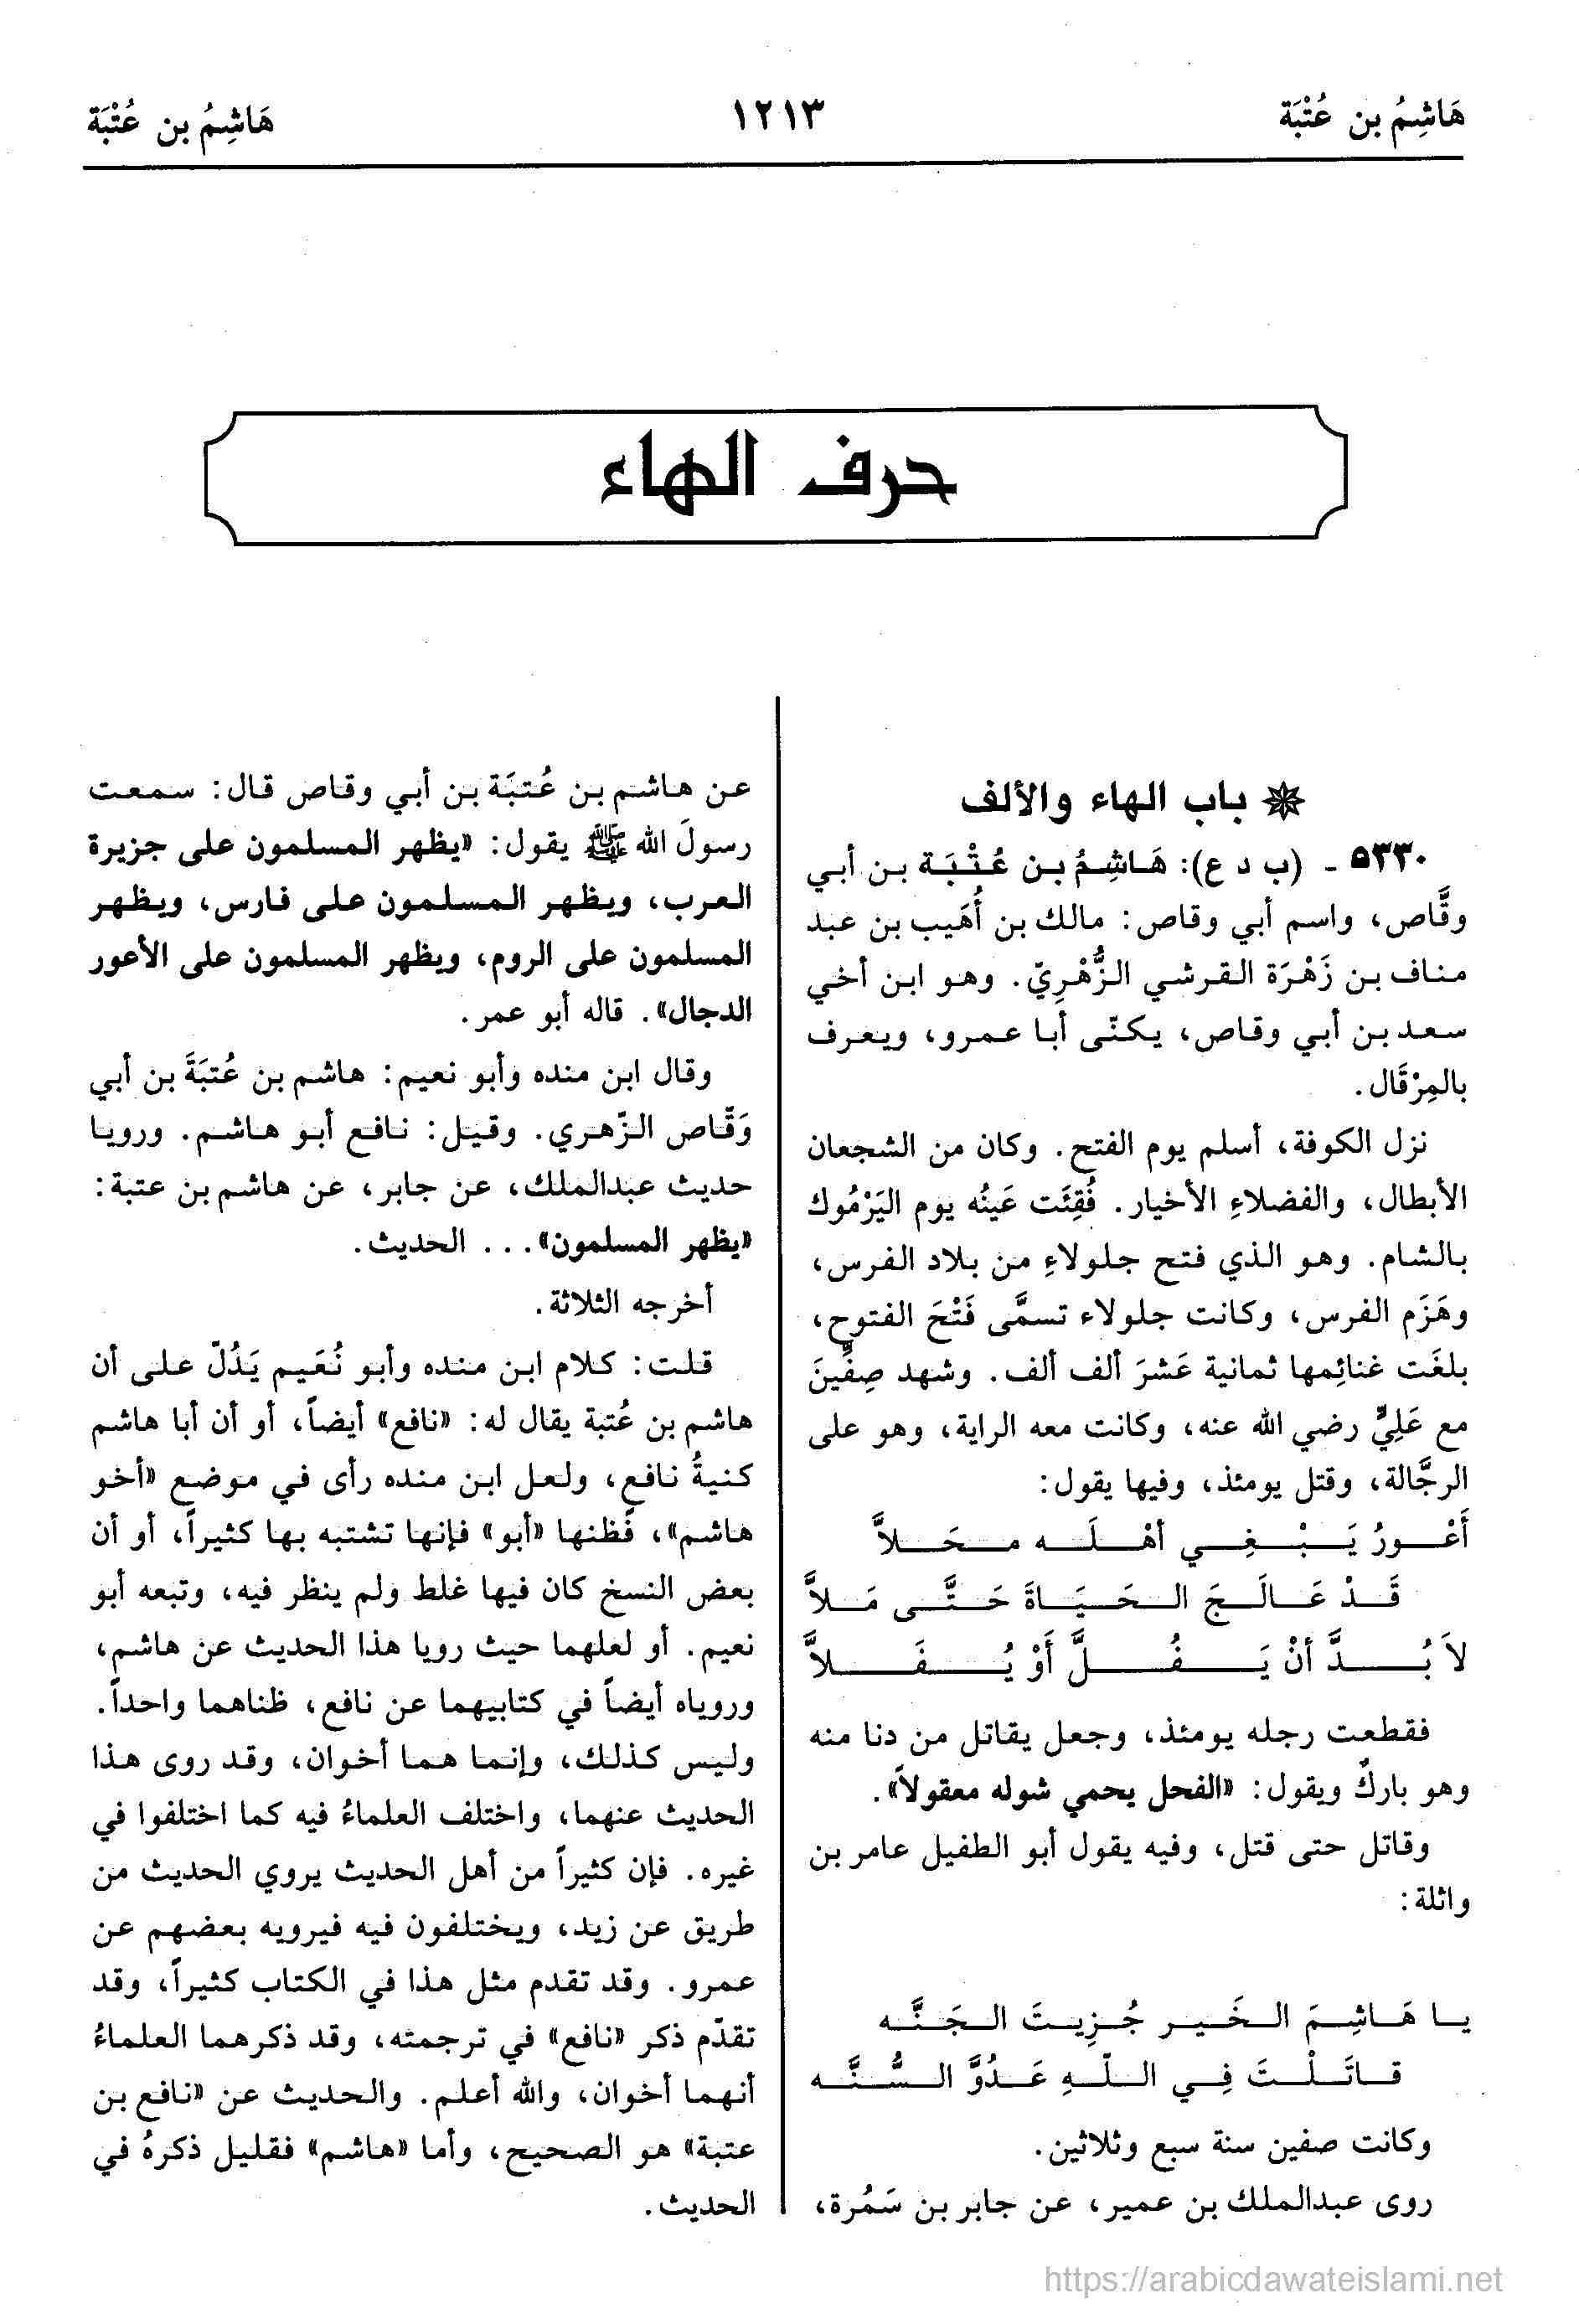 هَاشِمُ بن عُتْبَة
١٢١٣
هَاشِمُ بن عُتْبَة
حرف الهاء
باب الهاء والألف
٥٣٣٠ - (ب د ع): هَاشِمُ بن عُتْبَة بن أبي
وقَّاص، واسم أبي وقاص: مالك بن أُهَيب بن عبد
مناف بن زَهْرَة القرشي الزُّهْرِيّ. وهو ابن أخي
سعد بن أبي وقاص، يكنّى أبا عمرو، ويعرف
بالمِرْقَال.
نزل الكوفة، أسلم يوم الفتح. وكان من الشجعان
الأبطال، والفضلاءِ الأخيار. فُقِئَت عَينُه يوم اليَرْمُوك
بالشام. وهو الذي فتح جلولاءِ من بلاد الفرس،
وهَزَم الفرس، وكانت جلولاء تسمَّى فَتْحَ الفتوح،
بلغَت غنائِمها ثمانية عَشرَ ألف ألف. وشهد صِفِّينَ
مع عَلِيٍّ رضي الله عنه، وكانت معه الراية، وهو على
الرجَّالة، وقتل يومئذ، وفيها يقول:
أَعْورُ يَبْغِي أهْلَه محَلاَّ
قَدْ عَالَجَ الحَيَاةَ حَتَّى مَلاَّ
لاَ بُدَّ أنْ يَفُلَّ أَوْ يُفَلاَّ
فقطعت رجله يومئذ، وجعل يقاتل من دنا منه
وهو باركٌ ويقول: «الفحل يحمي شوله معقولاً».
وقاتل حتى قتل، وفيه يقول أبو الطفيل عامر بن
واثلة:
يا هَاشِمَ الخَير جُزِيتَ الجَنَّه
قاتَلْتَ فِي اللّهِ عَدُوَّ السُّنَّه
وكانت صفين سنة سبع وثلاثين.
روى عبدالملك بن عمير، عن جابر بن سَمُرة،
عن هاشم بن عُتبَة بن أبي وقاص قال: سمعت
رسولَ الله ﷺ يقول: «يظهر المسلمون على جزيرة
العرب، ويظهر المسلمون على فارس، ويظهر
المسلمون على الروم، ويظهر المسلمون على الأعور
الدجال». قاله أبو عمر.
وقال ابن منده وأبو نعيم: هاشم بن عُتبَةَ بن أبي
وَقَّاص الزّهري. وقيل: نافع أبو هاشم. ورويا
حديث عبدالملك، عن جابر، عن هاشم بن عتبة:
«يظهر المسلمون»... الحديث.
أخرجه الثلاثة.
قلت: كلام ابن منده وأبو نُعَيم يَدُلّ على أن
هاشم بن عُتبة يقال له: «نافع» أيضاً، أو أن أبا هاشم
كنيةُ نافع، ولعل ابن منده رأى في موضع «أخو
هاشم»، فَظنها «أبو» فإنها تشتبه بها كثيراً، أو أن
بعض النسخ كان فيها غلط ولم ينظر فيه، وتبعه أبو
نعيم. أو لعلهما حيث رويا هذا الحديث عن هاشم،
وروياه أيضاً في كتابيهما عن نافع، ظناهما واحداً.
وليس كذلك، وإنما هما أخوان، وقد روى هذا
الحديث عنهما، واختلف العلماءُ فيه كما اختلفوا في
غيره. فإن كثيراً من أهل الحديث يروي الحديث من
طريق عن زيد، ويختلفون فيه فيرويه بعضهم عن
عمرو. وقد تقدم مثل هذا في الكتاب كثيراً، وقد
تقدّم ذكر «نافع» في ترجمته، وقد ذكرهما العلماءُ
أنهما أخوان، والله أعلم. والحديث عن «نافع بن
عتبة» هو الصحيح، وأما «هاشم» فقليل ذكرهُ في
الحديث.
https://arabicdawateislami.net